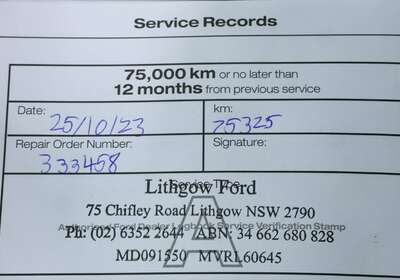 Service Records
75,000 km or no later than
12 months from previous service
Date: 25/10/23 km: 75325
Repair Order Number: 333458 Signature:
Service Type
Lithgow Ford
75 Chifley Road Lithgow NSW 2790
Authorised Ford Dealer Logbook Service Verification Stamp
Ph: (02) 6352 2644 ABN: 34 662 680 828
A
MD091550 MVRL60645